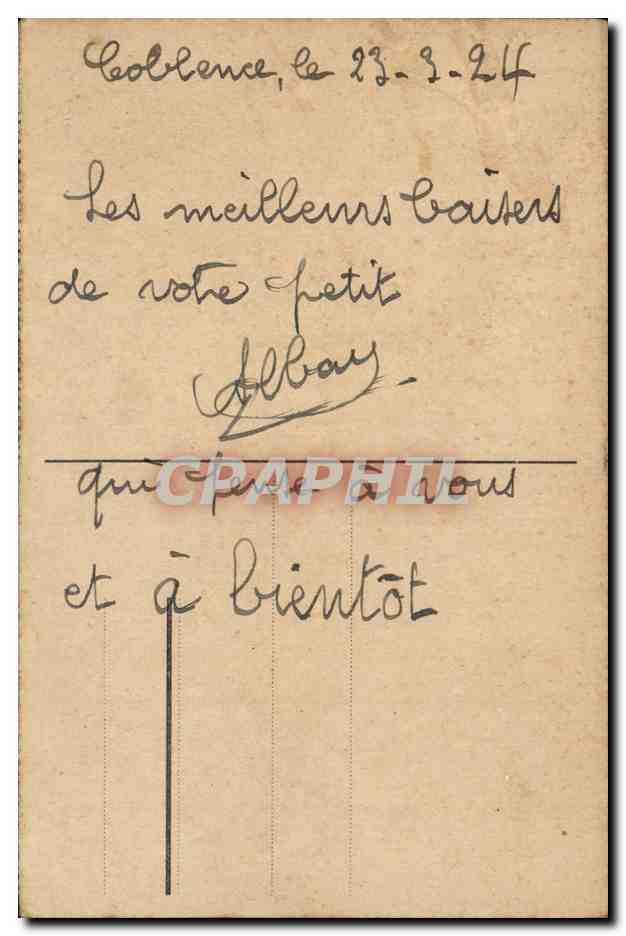 Coblence, le 23-3-24
Les meilleurs baisers
de votre petit
Albay
qui pense à vous
CPARPHIL
et à bientôt